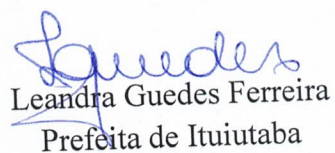 LGuedes
Leandra Guedes Ferreira
Prefeita de Ituiutaba